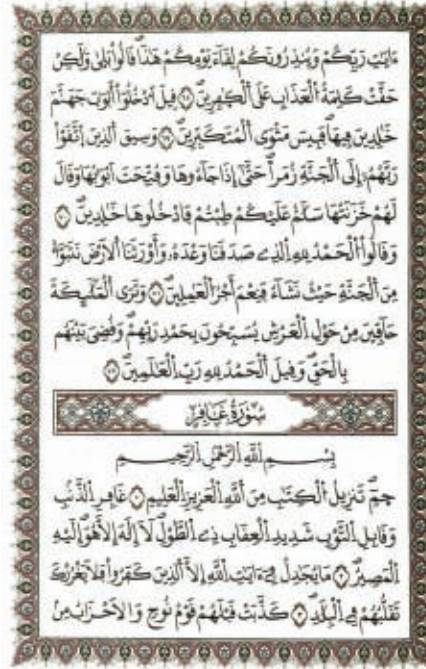 ءَايَٰتِ رَبِّكُمْ وَيُنذِرُونَكُمْ لِقَآءَ يَوْمِكُمْ هَٰذَا قَالُوا۟ بَلَىٰ وَلَٰكِنْ
حَقَّتْ كَلِمَةُ الْعَذَابِ عَلَى الْكَٰفِرِينَ ۝ قِيلَ اَدْخُلُوٓا۟ أَبْوَٰبَ جَهَنَّمَ
خَٰلِدِينَ فِيهَا فَبِيسَ مَثْوَى الْمُتَكَبِّرِينَ ۝ وَسِيقَ الذِينَ اَتَّقَوْا۟
رَبَّهُمُۥٓ إِلَى الْجَنَّةِ زُمَراً حَتَّىٰٓ إِذَا جَآءُوهَا وَفُتِّحَتَ اَبْوَٰبُهَا وَقَالَ
لَهُمْ خَزَنَتُهَا سَلَٰمٌ عَلَيْكُمْ طِبْتُمْ فَادْخُلُوهَا خَٰلِدِينَ ۝
وَقَالُوا۟ الْحَمْدُ لِلهِ الذِے صَدَقَنَا وَعْدَهُۥ وَأَوْرَثَنَا اَلَارْضَ نَتَبَوَّأُ
مِنَ الْجَنَّةِ حَيْثُ نَشَآءُ فَنِعْمَ أَجْرُ الْعَٰمِلِينَ ۝ وَتَرَى الْمَلَٰٓئِكَةَ
حَآفِّينَ مِنْ حَوْلِ الْعَرْشِ يُسَبِّحُونَ بِحَمْدِ رَبِّهِمْ وَقُضِيَ بَيْنَهُم
بِالْحَقِّ وَقِيلَ الْحَمْدُ لِلهِ رَبِّ الْعَٰلَمِينَ ۝
سُورَةُ غَافِر
بِسْمِ اللَّهِ الرَّحْمَٰنِ الرَّحِيمِ
حمٓ تَنزِيلُ الْكِتَٰبِ مِنَ اللَّهِ الْعَزِيزِ الْعَلِيمِ ۝ غَافِرِ الذَّنۢبِ
وَقَابِلِ التَّوْبِ شَدِيدِ الْعِقَابِ ذِے الطَّوْلِ لَآ إِلَٰهَ إِلَّا هُوَ إِلَيْهِ
الْمَصِيرُ ۝ مَا يُجَٰدِلُ فِےٓ ءَايَٰتِ اللَّهِ إِلَّا الذِينَ كَفَرُوا۟ فَلَا يَغْرُرْكَ
تَقَلُّبُهُمْ فِے الْبِلَٰدِ ۝ كَذَّبَتْ قَبْلَهُمْ قَوْمُ نُوحٍ وَالَاحْزَابُ مِنۢ